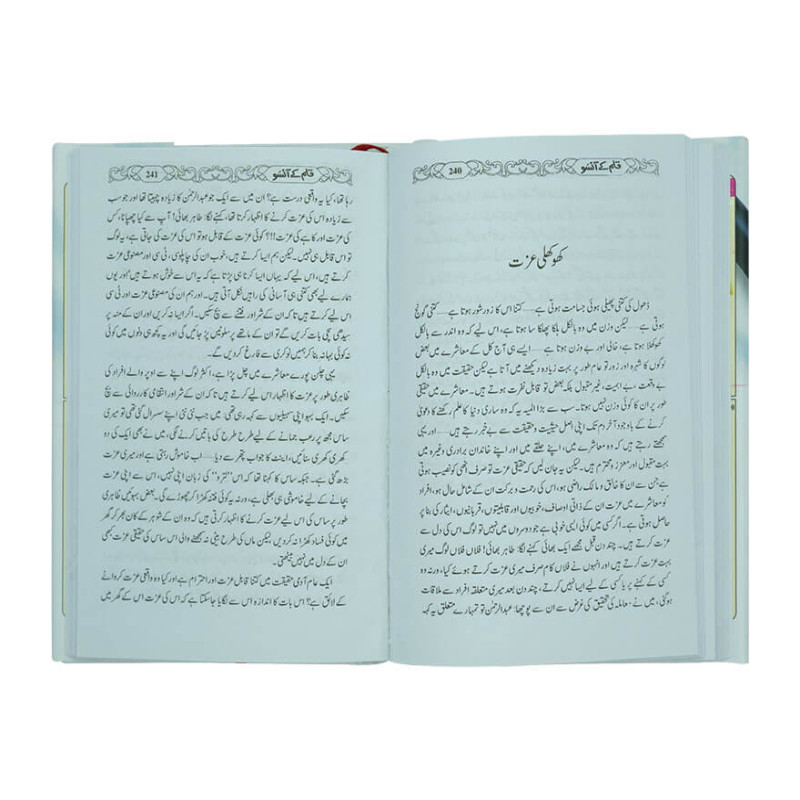 قلم کے آنسو
240
کھوکھلی عزت
ڈھول کی کتنی پھیلی ہوئی جسامت ہوتی ہے---کتنا اس کا زور شور ہوتا ہے---کتنی گونج
ہوتی ہے---لیکن وزن میں وہ بالکل ہلکا پھلکا سا ہوتا ہے، اس لیے کہ وہ اندر سے بالکل
کھوکھلا ہوتا ہے، خالی اور بے وزن ہوتا ہے---ایسے ہی آج کل کے معاشرے میں بعض
لوگوں کا شہرہ اور زور تو عام طور پر بہت زیادہ دیکھنے میں آتا ہے لیکن حقیقت میں وہ بالکل
بے وقعت، بے اہمیت، غیر مقبول بلکہ بعض تو قابل نفرت ہوتے ہیں۔ معاشرے میں حقیقی
طور پر ان کا کوئی وزن نہیں ہوتا۔ سب سے بڑا المیہ یہ کہ وہ ساری دنیا کا علم رکھنے کا دعویٰ
کرنے کے باوجود آخر دم تک اپنی اصل حیثیت و حقیقت سے بے خبر رہتے ہیں---اور یہی
سمجھتے رہتے ہیں کہ وہ معاشرے میں، اپنے حلقے میں اور اپنے خاندان برادری وغیرہ میں
بہت مقبول اور معزز و محترم ہیں۔ لیکن یہ جان لیں کہ حقیقی عزت تو صرف انھی کو نصیب ہوتی
ہے جن سے ان کا خالق و مالک راضی ہو، اس کی رحمت و برکت ان کے شامل حال ہو، افراد
کو معاشرے میں عزت ان کے ذاتی اوصاف، خوبیوں اور قابلیتوں، قربانیوں، ایثار کی بنا پر
حاصل ہوتی ہے۔ اگر کسی میں کوئی ایسی خوبی ہے جو دوسروں میں نہیں تو لوگ اس کی دل سے
عزت کرتے ہیں۔ چند دن قبل مجھے ایک بھائی کہنے لگا: طاہر بھائی! فلاں فلاں لوگ میری
بہت عزت کرتے ہیں اور انہوں نے فلاں کام صرف میری عزت کرتے ہوئے کیا، ورنہ وہ
کسی کے کہنے پر یا کسی کے لیے ایسا نہیں کرتے، چند دن بعد میری متعلقہ افراد سے ملاقات
ہو گئی، میں نے معاملہ کی تحقیق کی غرض سے ان سے پوچھا: عبدالرحمٰن تو تمہارے متعلق یہ کہہ
قلم کے آنسو
241
رہا تھا، کیا یہ واقعی درست ہے؟ ان میں سے ایک جو عبدالرحمٰن کا زیادہ چہیتا تھا اور جو سب
سے زیادہ اس کی عزت کرنے کا اظہار کرتا تھا، کہنے لگا: طاہر بھائی! آپ سے کیا چھپانا، کس
کی عزت اور کاہے کی عزت!!! کوئی عزت کے قابل ہو تو اس کی عزت کی جاتی ہے، یہ لوگ
تو اس قابل ہی نہیں۔ لیکن ہم ایسا کرتے ہیں، خوب ان کی چاپلوسی، ٹی سی اور مصنوعی عزت
کرتے ہیں، اس لیے کہ یہاں ایسا کرنا ہی پڑتا ہے کہ یہ اس سے خوش ہوتے ہیں اور یوں
ہمارے لیے بھی کتنی ہی آسانی کی راہیں نکل آتی ہیں۔ اور ہم ان کی مصنوعی عزت اور ٹی سی
اس لیے کرتے ہیں تا کہ ان کے شر اور فتنے سے بچ سکیں۔ اگر ایسا نہ کریں اور ان کے منہ پر
سیدھی سچی بات کریں گے تو ان کے ماتھے پر سلوٹیں پڑ جائیں گی اور یہ کچھ ہی دنوں میں کوئی
نہ کوئی بہانہ بنا کر ہمیں نوکری سے فارغ کر دیں گے۔
یہی چلن پورے معاشرے میں چل پڑا ہے، اکثر لوگ اپنے سے اوپر والے افراد کی
ظاہری طور پر عزت کا اظہار اس لیے کرتے ہیں تا کہ ان کے شر اور انتقامی کارروائی سے بچ
سکیں۔ ایک بہو اپنی سہیلیوں سے کہہ رہی تھی: میں جب نئی نئی اپنے سسرال گئی تھی تو میری
ساس مجھ پر رعب جمانے کے لیے طرح طرح کی باتیں کرنے لگی، میں نے بھی ایک کی دو
کھری کھری سنائیں، اینٹ کا جواب پتھر سے دیا---اب خاموش رہتی ہے اور میری عزت
بڑھ گئی ہے۔ جبکہ ساس کا کہنا تھا کہ اس "لترو" کی زبان اپنی نہیں، اس سے اپنی عزت
بچانے کے لیے خاموشی ہی بھلی ہے، ورنہ یہ کوئی فتنہ کھڑا کر چھوڑے گی۔ بعض بہوئیں ظاہری
طور پر ساس کی اس لیے عزت کرنے کا اظہار کرتی ہیں کہ وہ ان کے شوہر کے کان بھر کر گھر
میں کوئی فساد کھڑا نہ کر دیں لیکن ماں کی طرح بیٹی نہ سمجھنے والی اس ساس کی حقیقی عزت کبھی
ان کے دل میں نہیں بیٹھتی۔
ایک عام آدمی حقیقت میں کتنا قابل عزت اور احترام ہے اور کیا وہ واقعی عزت کروانے
کے لائق ہے؟ اس بات کا اندازہ اس سے لگایا جا سکتا ہے کہ اس کی عزت اس کے گھر میں